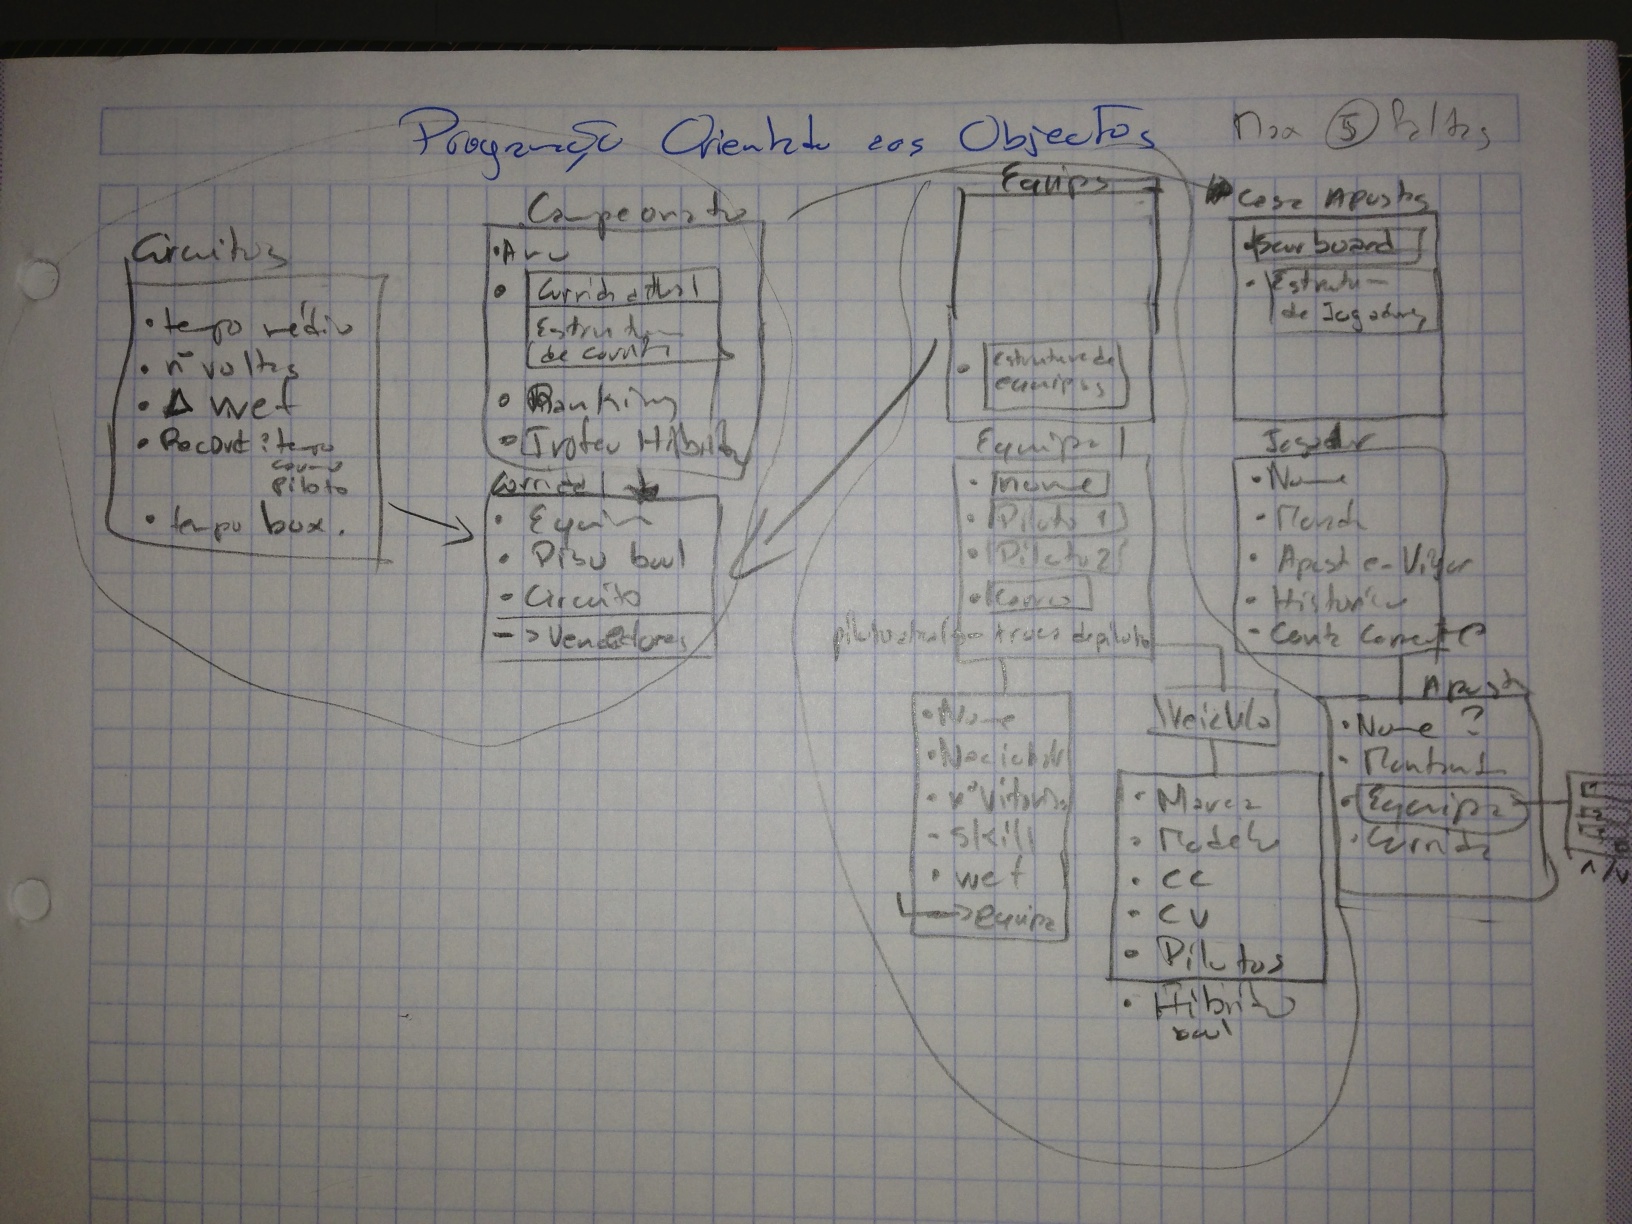 Programação Orientada aos Objectos
Max 5 Faltas
Circuitos
• tempo médio
• nº voltas
• Δ wet
• Record: tempo
carro
piloto
• tempo box.
Campeonato
• Corrida actual
Estrutura
de corrida
• Ranking
• Trofeu Híbrido
Corrida 1
• Equipa
• Piso bool
• Circuito
-> Vencedores
Equipa
• Estrutura de
equipas
Equipa 1
• Nome
• Piloto 1
• Piloto 2
• Carro
troca de piloto
• Nome
• nº Vitorias
- Skill
• wet
-> equipa
Veiculo
• Marca
• Modelo
• CC
• CV
• Pilotos
• Híbrido
bool
Casa Apostas
• Scoreboard
• Estrutura
de Jogadores
Jogador
• Nome
• Morada
• Aposta e-Vigor
• Historico
- Conta Corrente
Aposta
• Nome ?
• Montante
• Equipa
• Corrida